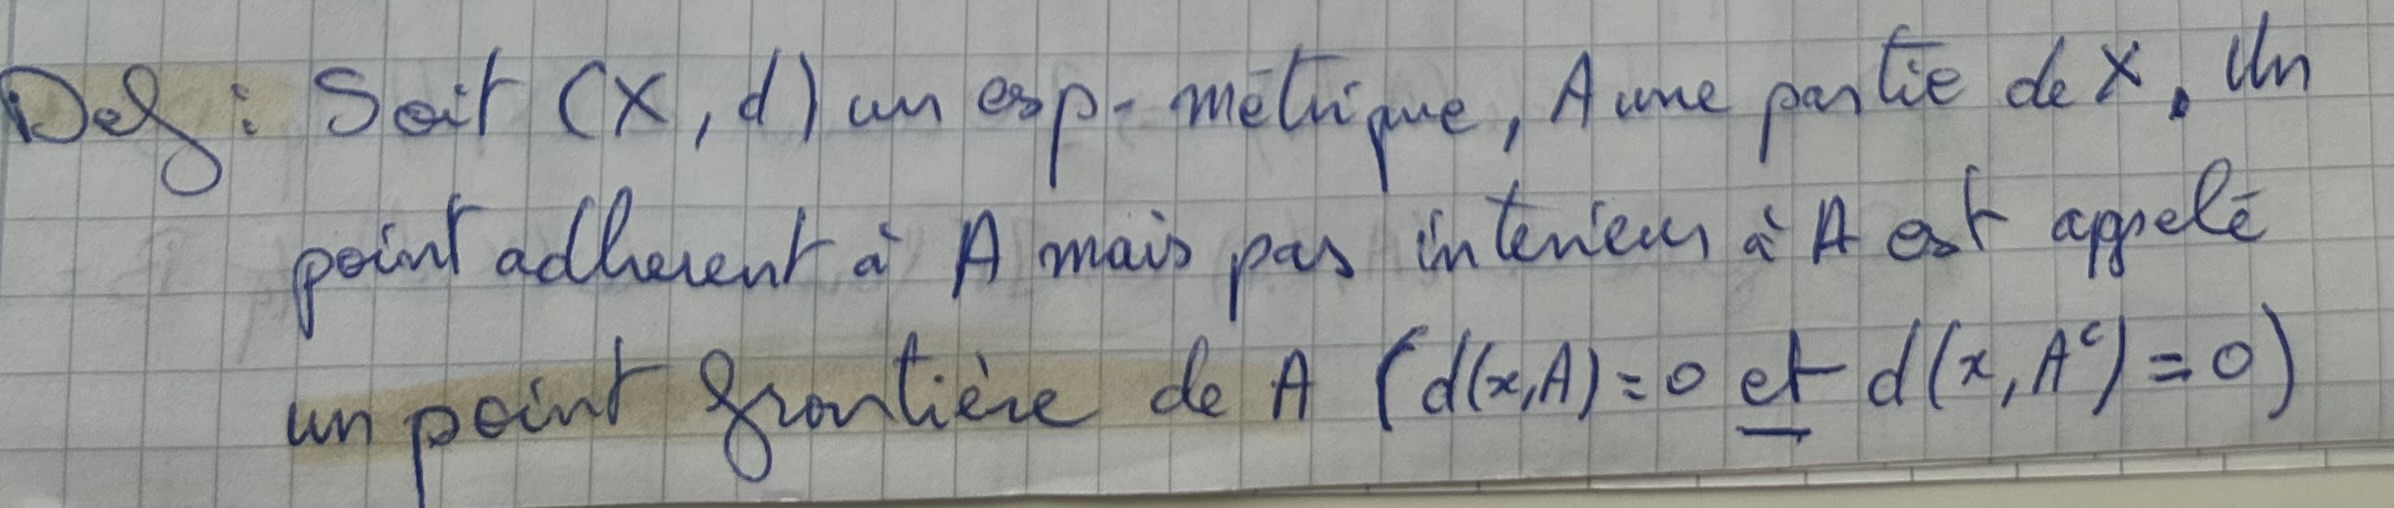 Def : Soit (X, d) un esp-métrique, A une partie de X. Un
point adherent à A mais pas interieur à A est appelé
un point frontière de A (d(x,A)=0 et d(x,Aᶜ)=0)